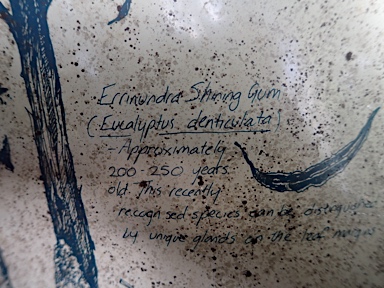 Errinundra Shining Gum
(Eucalyptus denticulata)
- Approximately
200-250 years
old. This recently
recognised species can be distinguished
by unique glands on the leaf margins